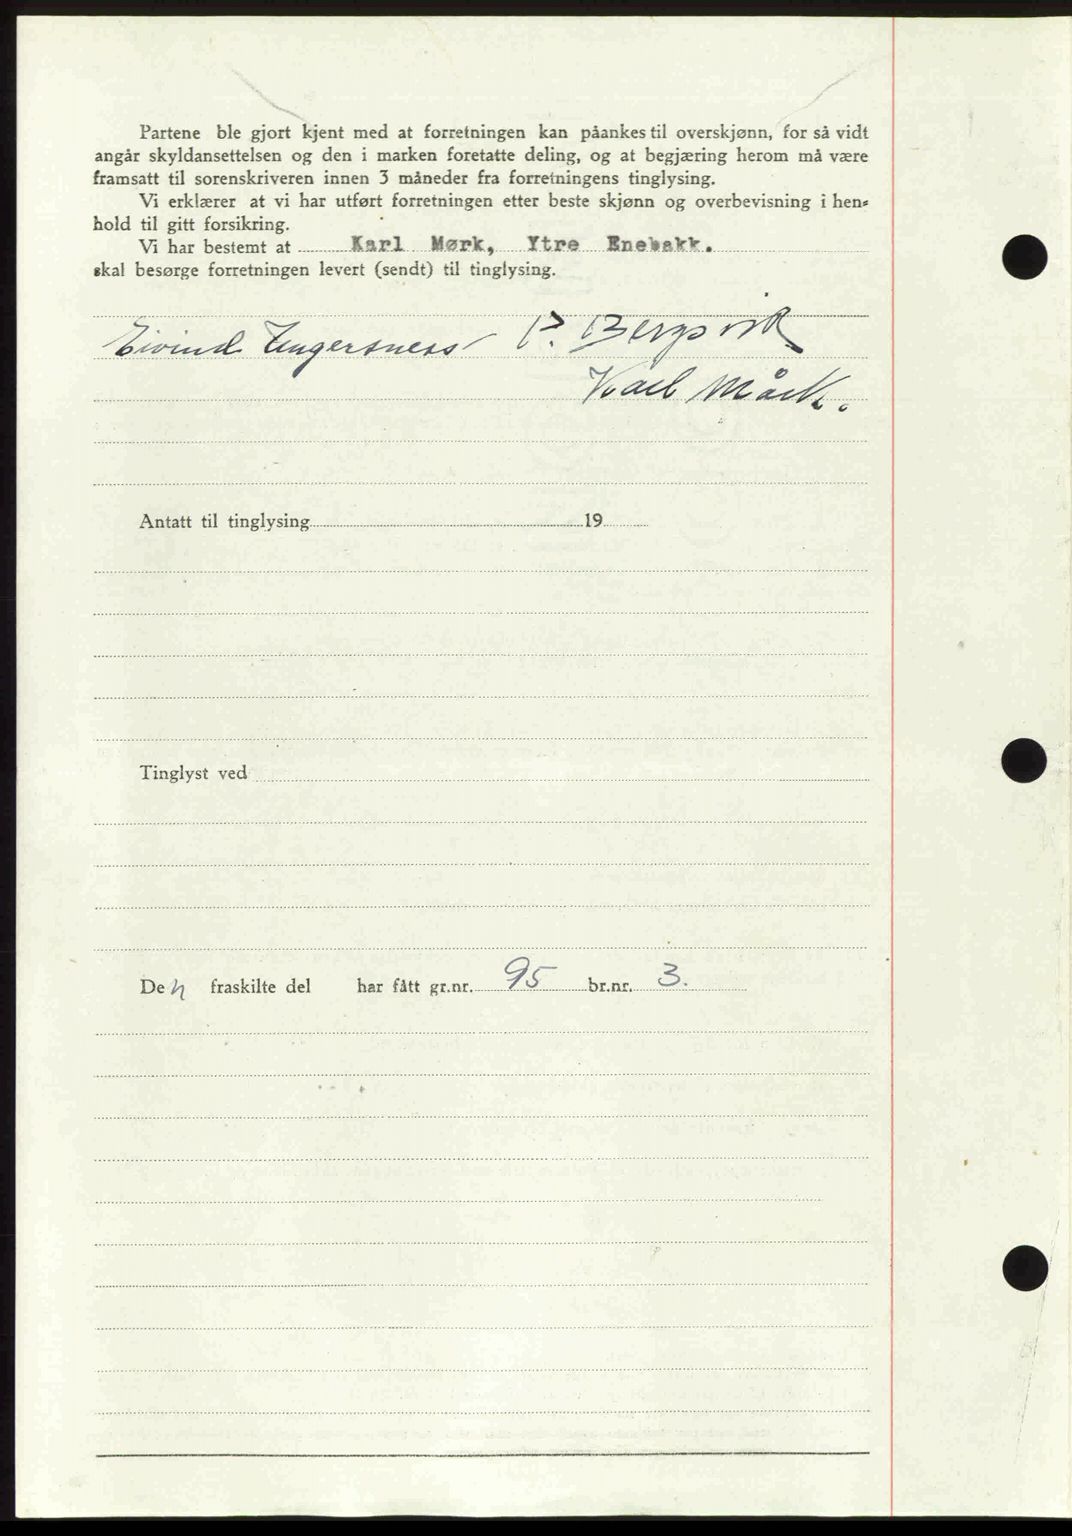 Partene ble gjort kjent med at forretningen kan påankes til overskjønn, for så vidt
angår skyldansettelsen og den i marken foretatte deling, og at begjæring herom må være
framsatt til sorenskriveren innen 3 måneder fra forretningens tinglysing.
Vi erklærer at vi har utført forretningen etter beste skjønn og overbevisning i hen-
hold til gitt forsikring.
Vi har bestemt at Karl Mørk, Ytre Enebakk.
skal besørge forretningen levert (sendt) til tinglysing.
Eivind P. Bergsvik
Karl Mørk.
Antatt til tinglysing 19
Tinglyst ved
Den fraskilte del har fått gr.nr. 95 br.nr. 3.